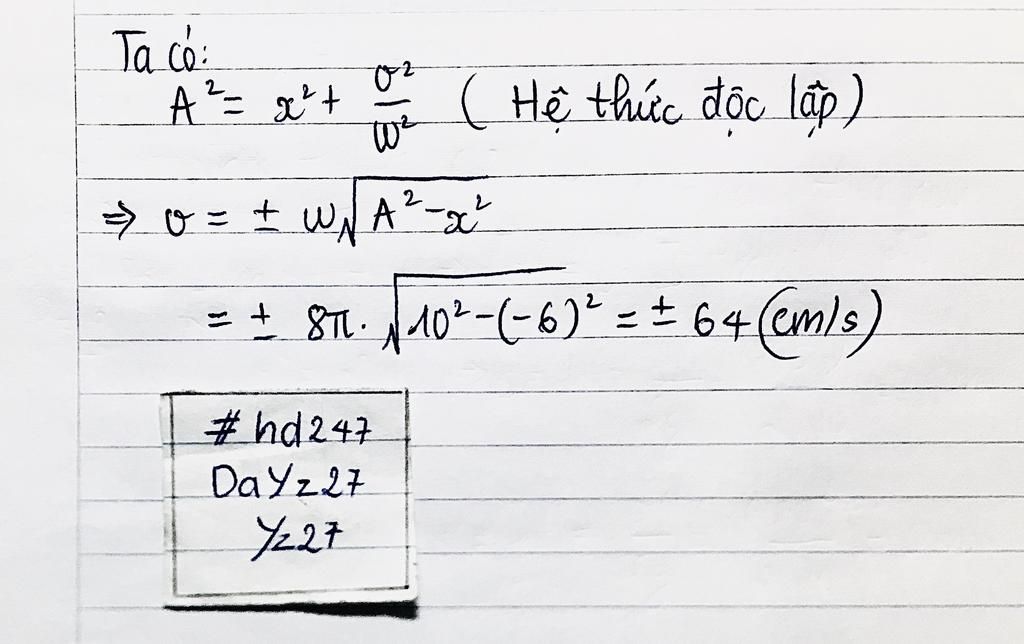 Ta có:
A² = x² + v²/w² (Hệ thức độc lập)
⇒ v = ± w√(A² - x²)
= ± 8π. √(10² - (-6)²) = ± 64 (cm/s)
#hd247
DaYz27
Yz27